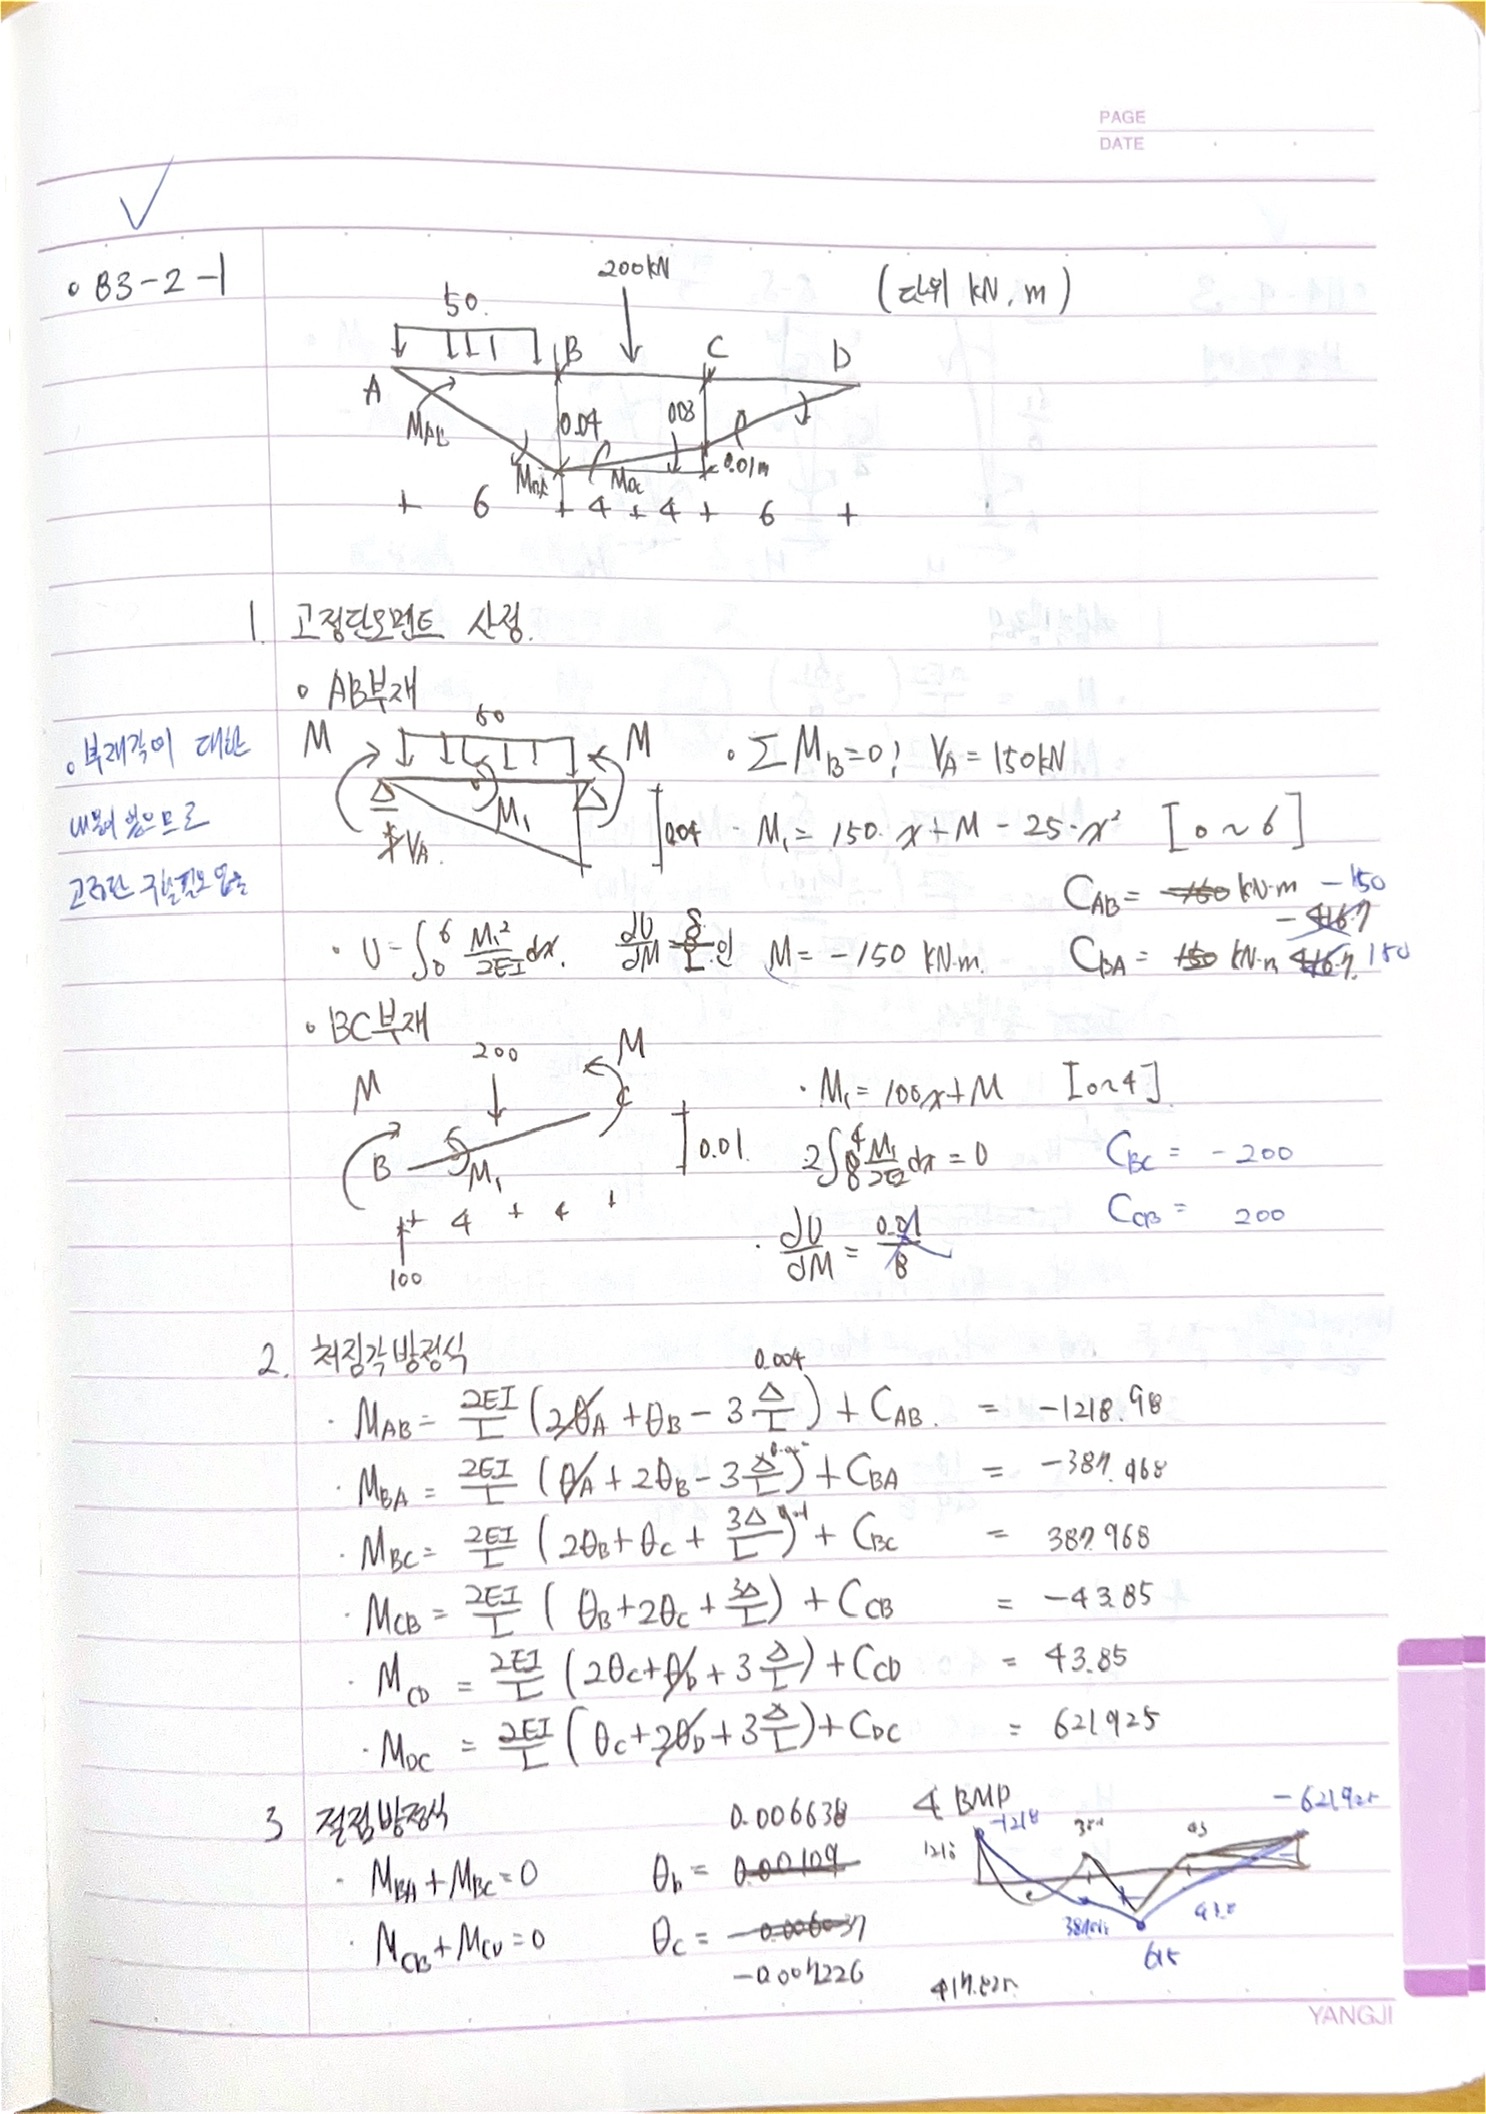 PAGE
DATE
∘ 83-2-1
200kN
(단위 kN, m)
50.
A B C D
M_AB 0.04 0.03 0.01m
M_BA M_BC
+ 6 + 4 + 4 + 6 +
1. 고정단모멘트 산정.
∘ AB부재
∘ 부재각에 대한
내용이 없으므로
고정단 구할필요 없음
M 50 M
M₁
V_A
0.04
· ΣM_B=0; V_A = 150kN
· M₁ = 150·x+M - 25·x² [0~6]
C_AB = -150 kN·m -150
-416.7
C_BA = 150 kN·m 416.7. 150
· U = ∫₀⁶ M₁²/2EI dx. dU/dM = δ/L 인 M = -150 kN·m.
∘ BC부재
200 M
M
B M₁ C
0.01.
+ 4 + 4 +
100
· M₁ = 100x+M [0~4]
dx = 0
· dU/dM = 0.01/8
C_BC = -200
C_CB = 200
2. 처짐각방정식
0.004
· M_AB = 2EI/L (2θ_A + θ_B - 3 Δ/L) + C_AB. = -1218.98
· M_BA = 2EI/L (θ_A + 2θ_B - 3 Δ/L) + C_BA = -387.968
· M_BC = 2EI/L (2θ_B + θ_C + 3Δ/L) + C_BC = 387.968
· M_CB = 2EI/L (θ_B + 2θ_C + 3Δ/L) + C_CB = -43.85
· M_CD = 2EI/L (2θ_C + θ_D + 3 Δ/L) + C_CD = 43.85
· M_DC = 2EI/L (θ_C + 2θ_D + 3 Δ/L) + C_DC = 621.925
3 절점방정식
· M_BA + M_BC = 0
· M_CB + M_CD = 0
0.006638
θ_b = 0.00109
θ_C = -0.006037
-0.007226
4 BMD
-1218
1218
-621.925
615
YANGJI